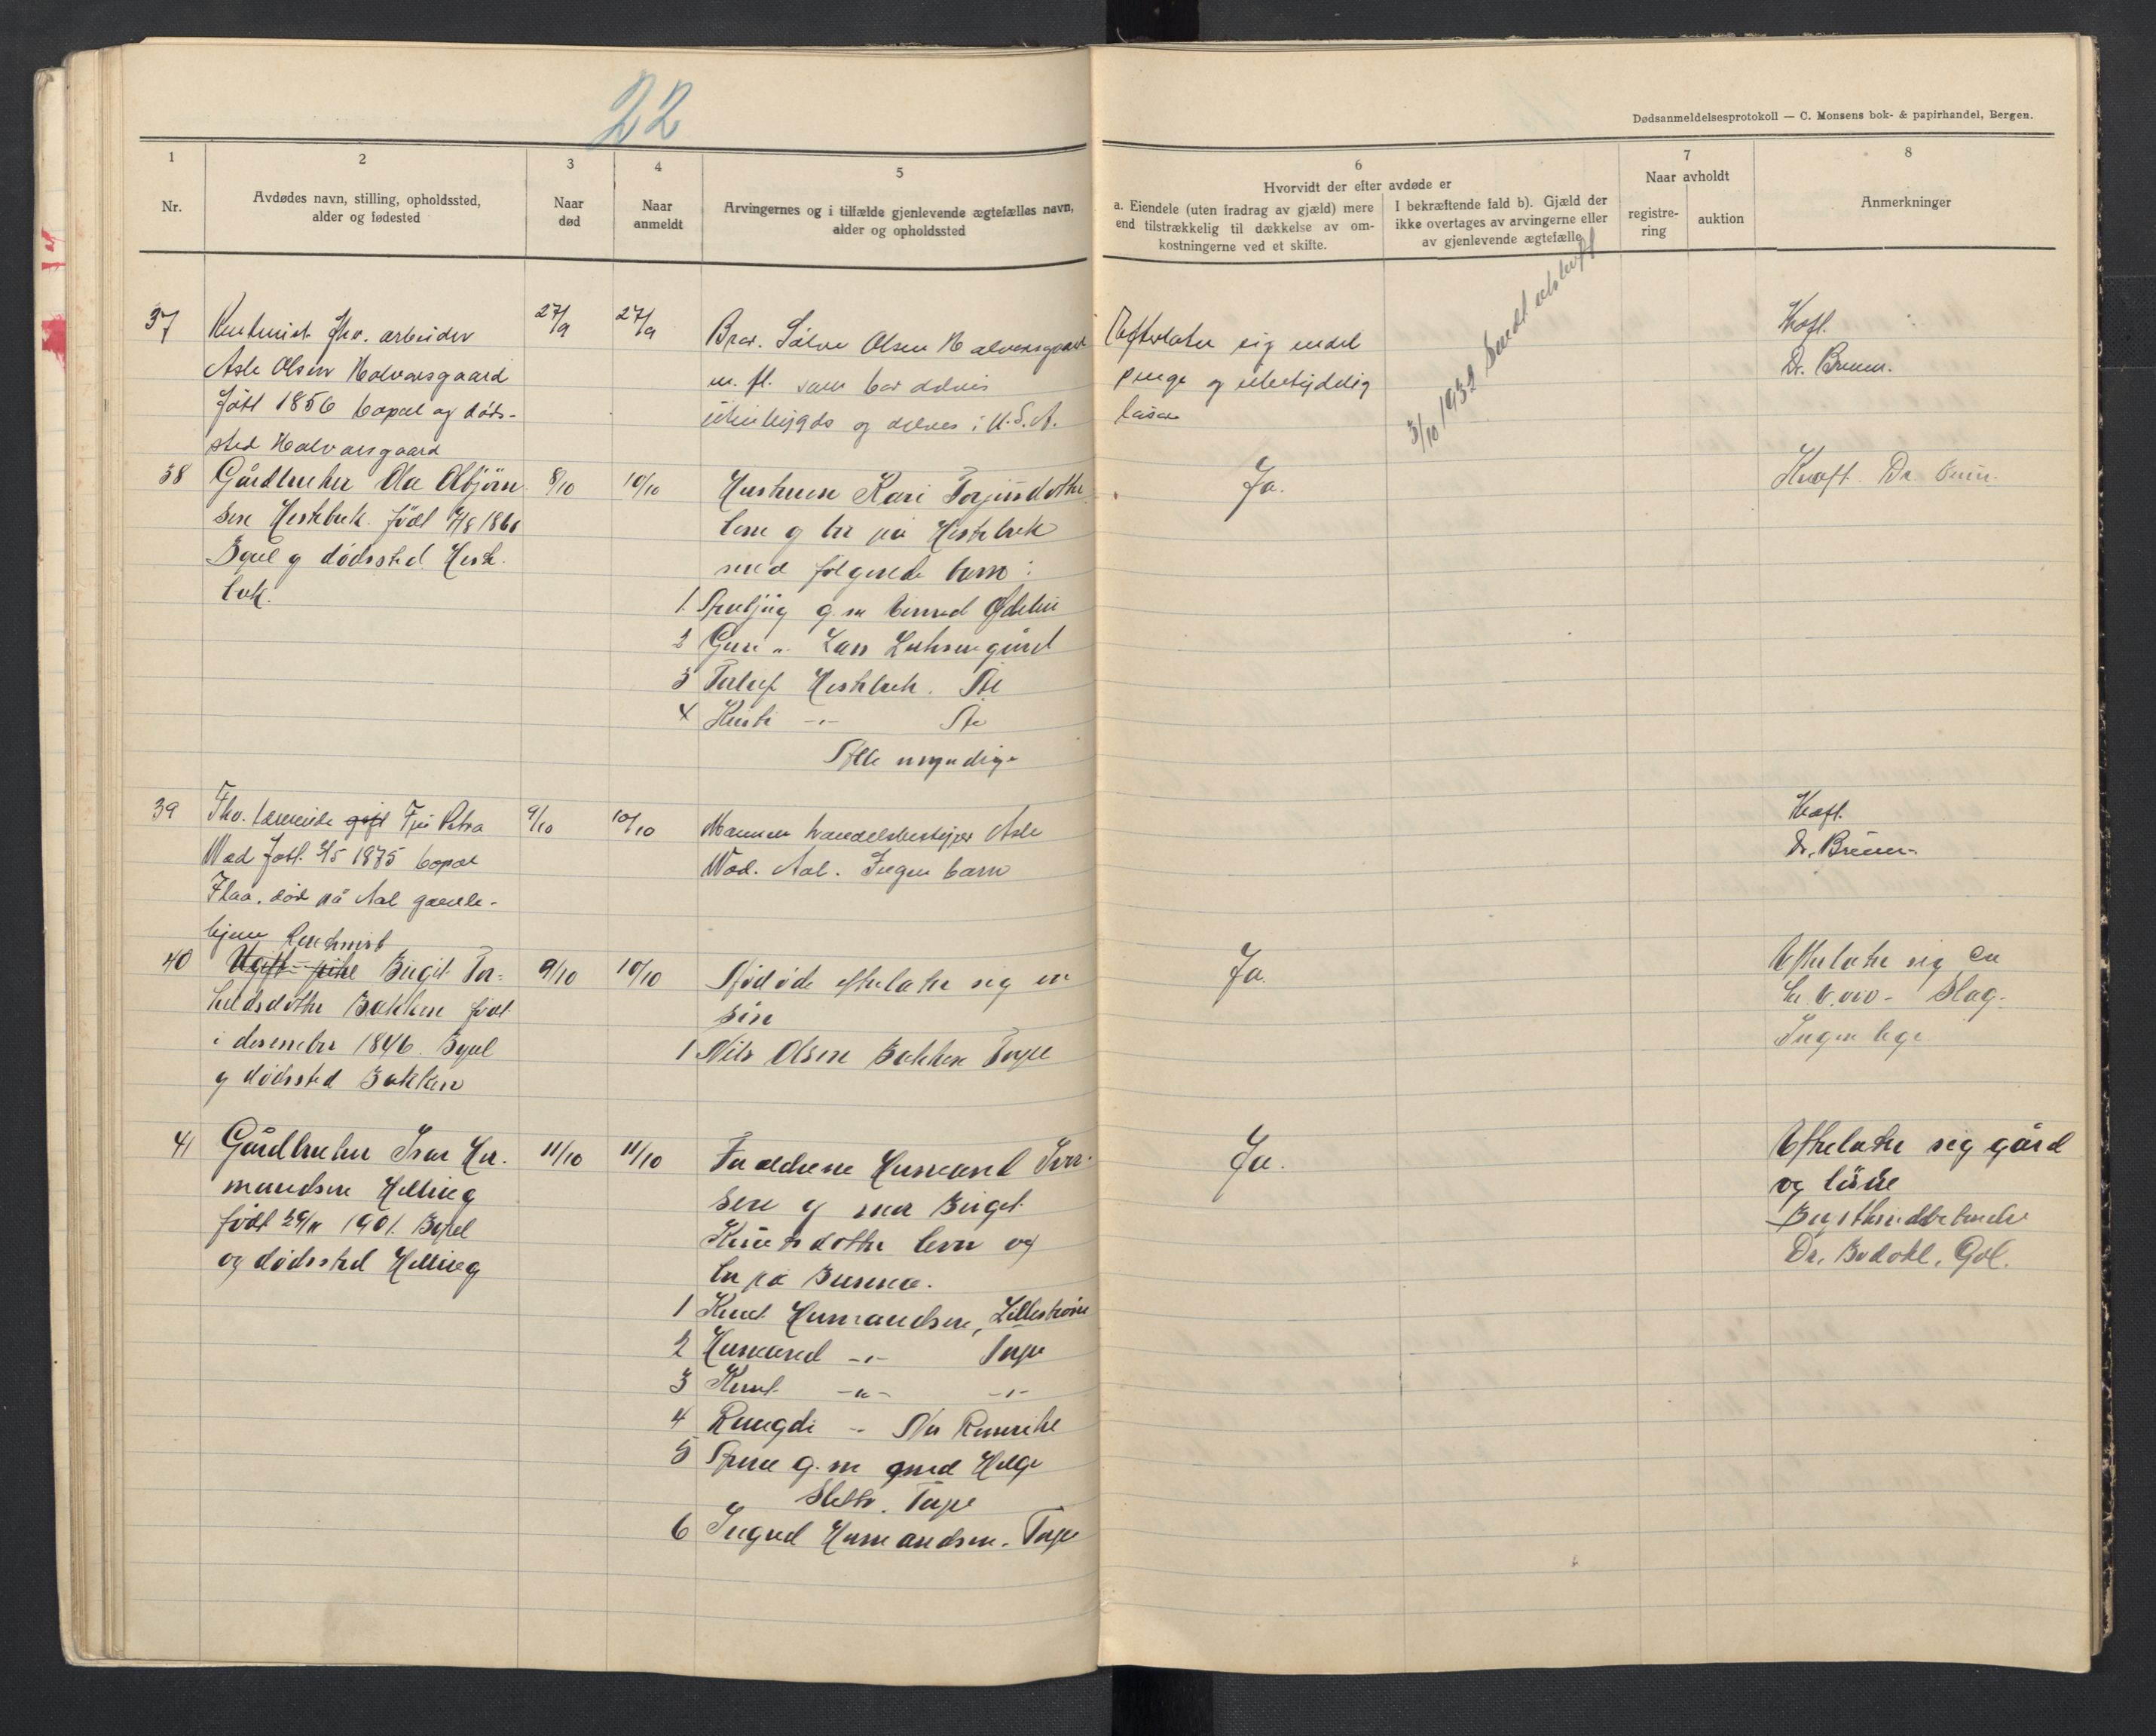 22
Dødsanmeldelsesprotokoll — C. Monsens bok- & papirhandel, Bergen.
1
Nr.
2
Avdødes navn, stilling, opholdssted,
alder og fødested
3
Naar
død
4
Naar
anmeldt
5
Arvingernes og i tilfælde gjenlevende ægtefælles navn,
alder og opholdssted
6
Hvorvidt der efter avdøde er
a. Eiendele (uten fradrag av gjæld) mere
end tilstrækkelig til dækkelse av om-
kostningerne ved et skifte.
I bekræftende fald b). Gjæld der
ikke overtages av arvingerne eller
av gjenlevende ægtefælle
7
Naar avholdt
registre-
ring
auktion
8
Anmerkninger
37
fhv. arbeider
Asle Olsen Halvorsgaard
født 1856 bopæl og døds-
sted Halvorsgaard
27/9
27/9
Bror. Sølve Olsen Halvorsgaard
m. fl. som bor delvis
og delvis i U.S.A.
Efterlater sig endel
penge og ubetydelig
løsøre
3/10 1932
Kraft.
Dr. Bruun.
38
Gårdbruker Ola Asbjørn
sen Hestebrek. født 1860
Bopel og dødssted Hest
brek.
8/10
10/10
Hustruen Kari Torjusdotter
leve og bor på Hestebrek
med følgende barn:
1 g. m
2 Guri " Lars
3 Torleif Hestebrek. Ål
4 Kristi -"- Ål
Alle myndige
Ja.
Kraft Dr. Bruun.
39
Fhv. gift Fru Petra
Wad født 1875 bopæl
Flaa. død på Aal gamle-
hjem
9/10
10/10
Mannen handelsbestyrer Asle
Wad. Aal. Ingen barn
Kraft.
Dr. Bruun.
40
Ugift pike Birgit Tor-
keldsdotter Bakken født
i desember 1846. Bopel
og dødssted Bakken
9/10
10/10
Avdøde efterlater sig en
sønn
1 Nils Olsen Bakken Torpe
Ja.
Efterlater sig ca
Slag.
Ingen lege
41
Gårdbruker Ivar Her-
mundsen Helling
født 29/11 1901. Bopel
og dødssted Helling
11/10
11/10
Foreldrene Hermand Ivar-
sen og mor Birgit
Knutsdotter lever og
bor på
1 Knut Hermandsen, Lillestrøm
2 Hermand -"- Torpo
3 Knut -"- -"-
4 Rangdi -"-
5 g. m med Helge
Torpe
6 Ingrid Hermandsen. Torpe
Ja.
Efterlater sig gård
og løsøre
Dr. Bodahl, Gol.